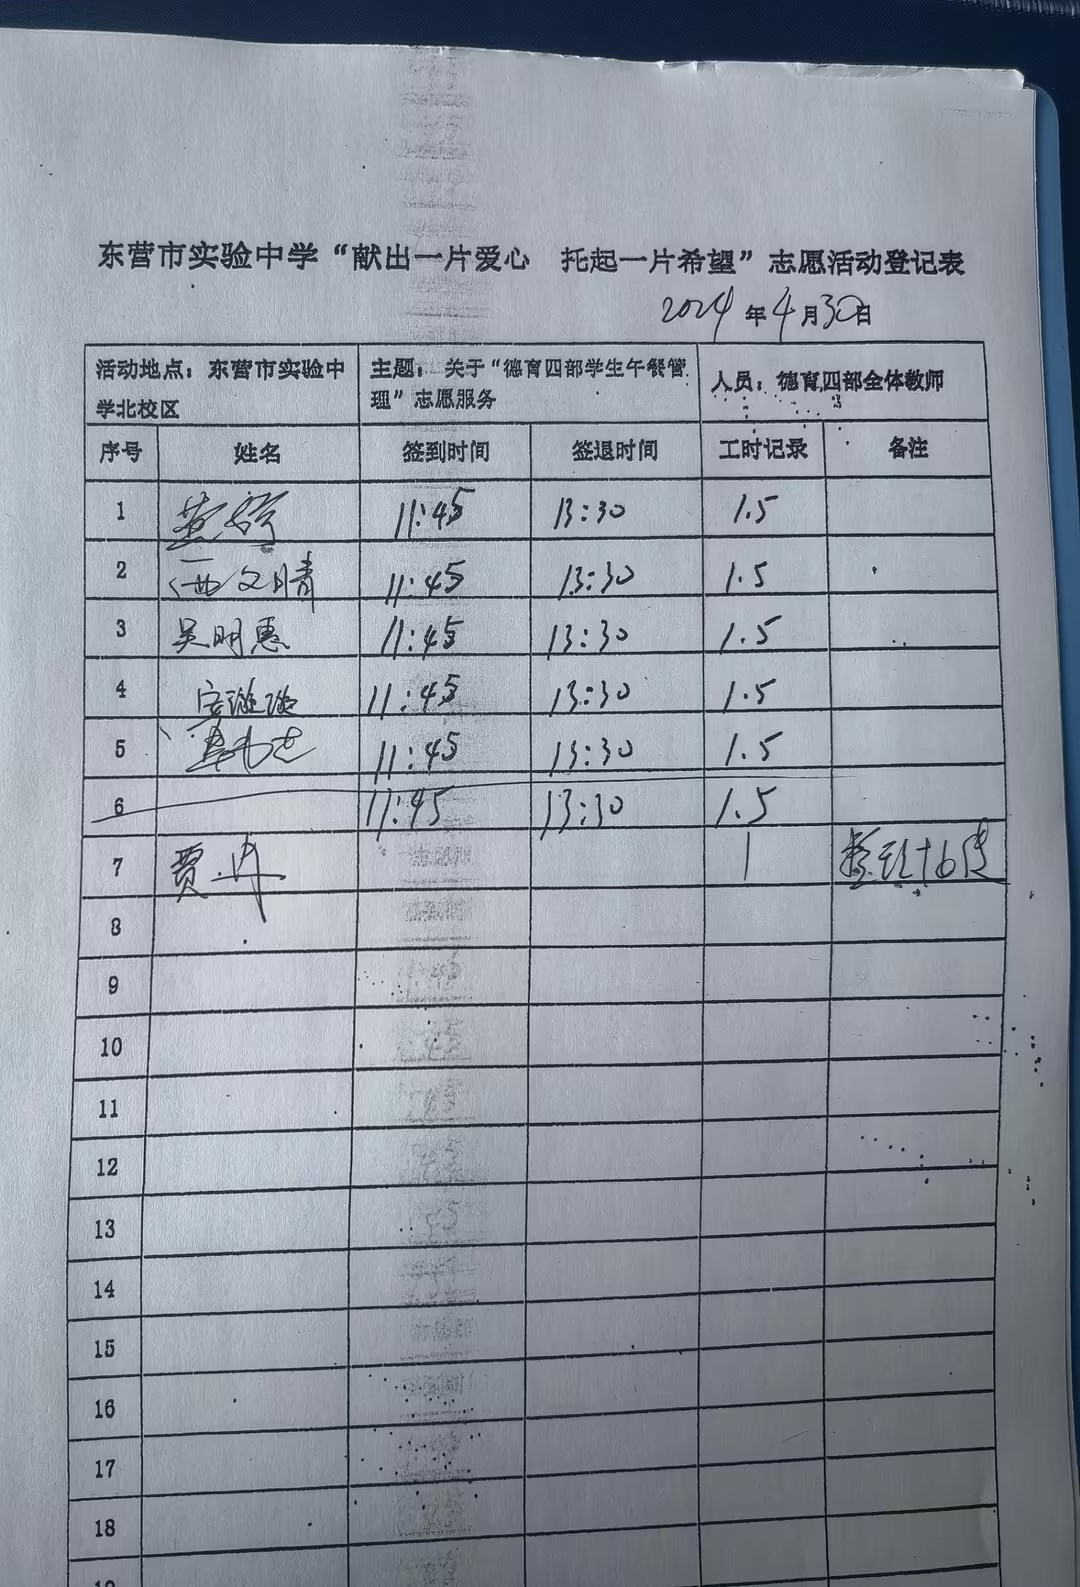 东营市实验中学“献出一片爱心 托起一片希望”志愿活动登记表
2024年4月30日
活动地点：东营市实验中学北校区 主题：关于“德育四部学生午餐管理”志愿服务 人员：德育四部全体教师
序号 姓名 签到时间 签退时间 工时记录 备注
1 11:45 13:30 1.5
2 文晴 11:45 13:30 1.5
3 吴明惠 11:45 13:30 1.5
4 11:45 13:30 1.5
5 11:45 13:30 1.5
6 11:45 13:30 1.5
7 贾冉 1
8
9
10
11
12
13
14
15
16
17
18